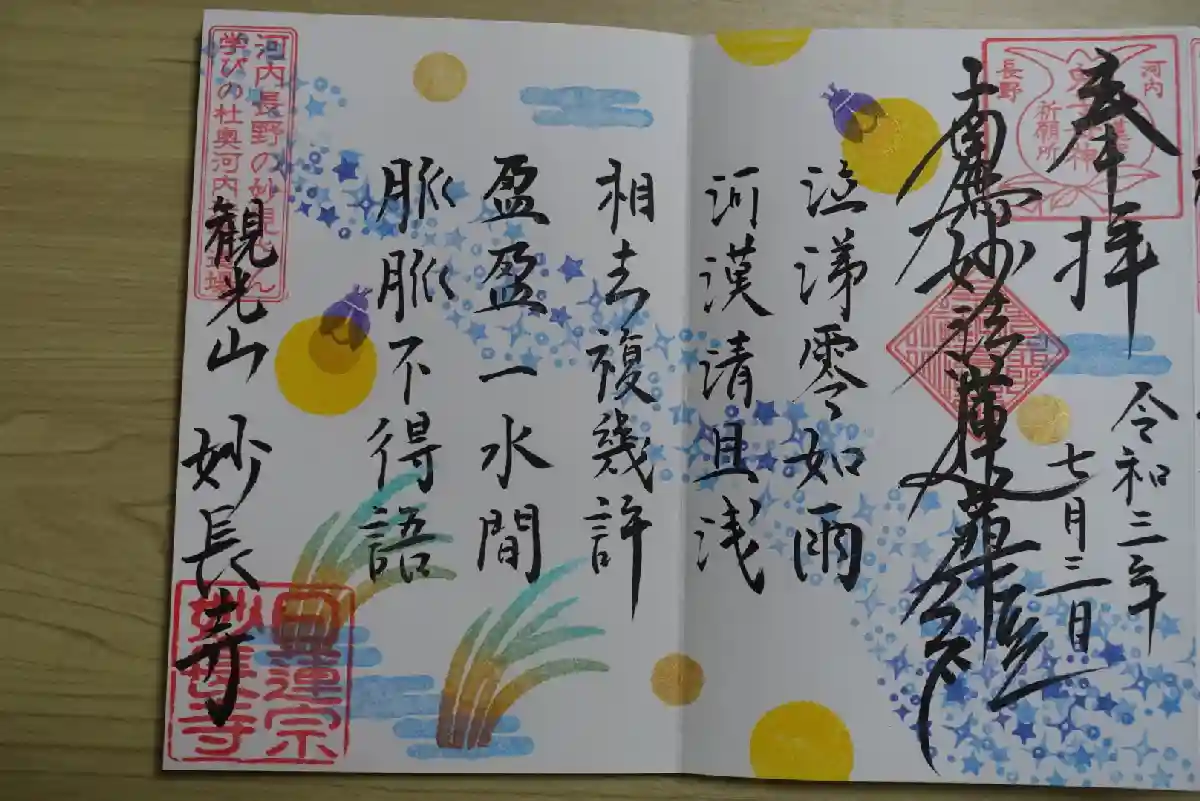 奉拝
河内
長野
祈願所
令和三年
七月三日
南無妙法蓮華経
泣涕零如雨
河漢清且浅
相去複幾許
盈盈一水間
脈脈不得語
河内長野の妙見さん
学びの杜奥河内道場
観光山 妙長寺
日蓮宗
妙長寺